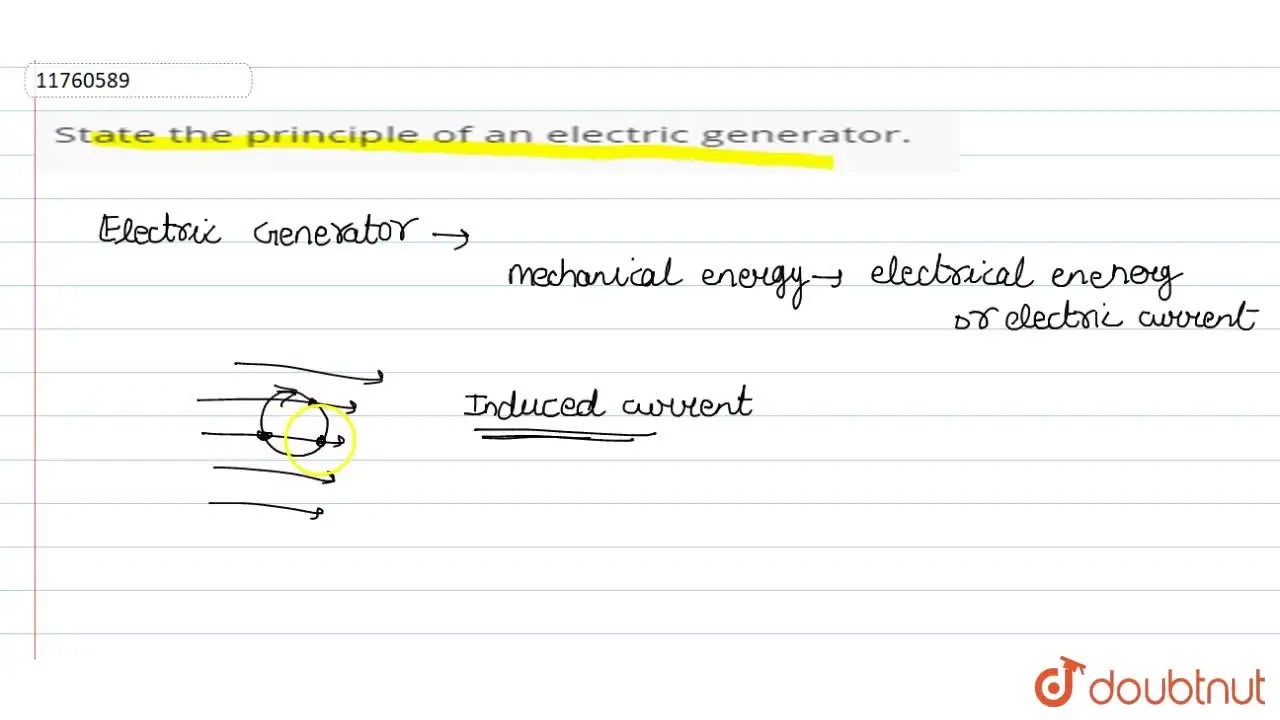 11760589
State the principle of an electric generator.
Electric Generator →
mechanical energy → electrical energy
or electric current
Induced current
doubtnut